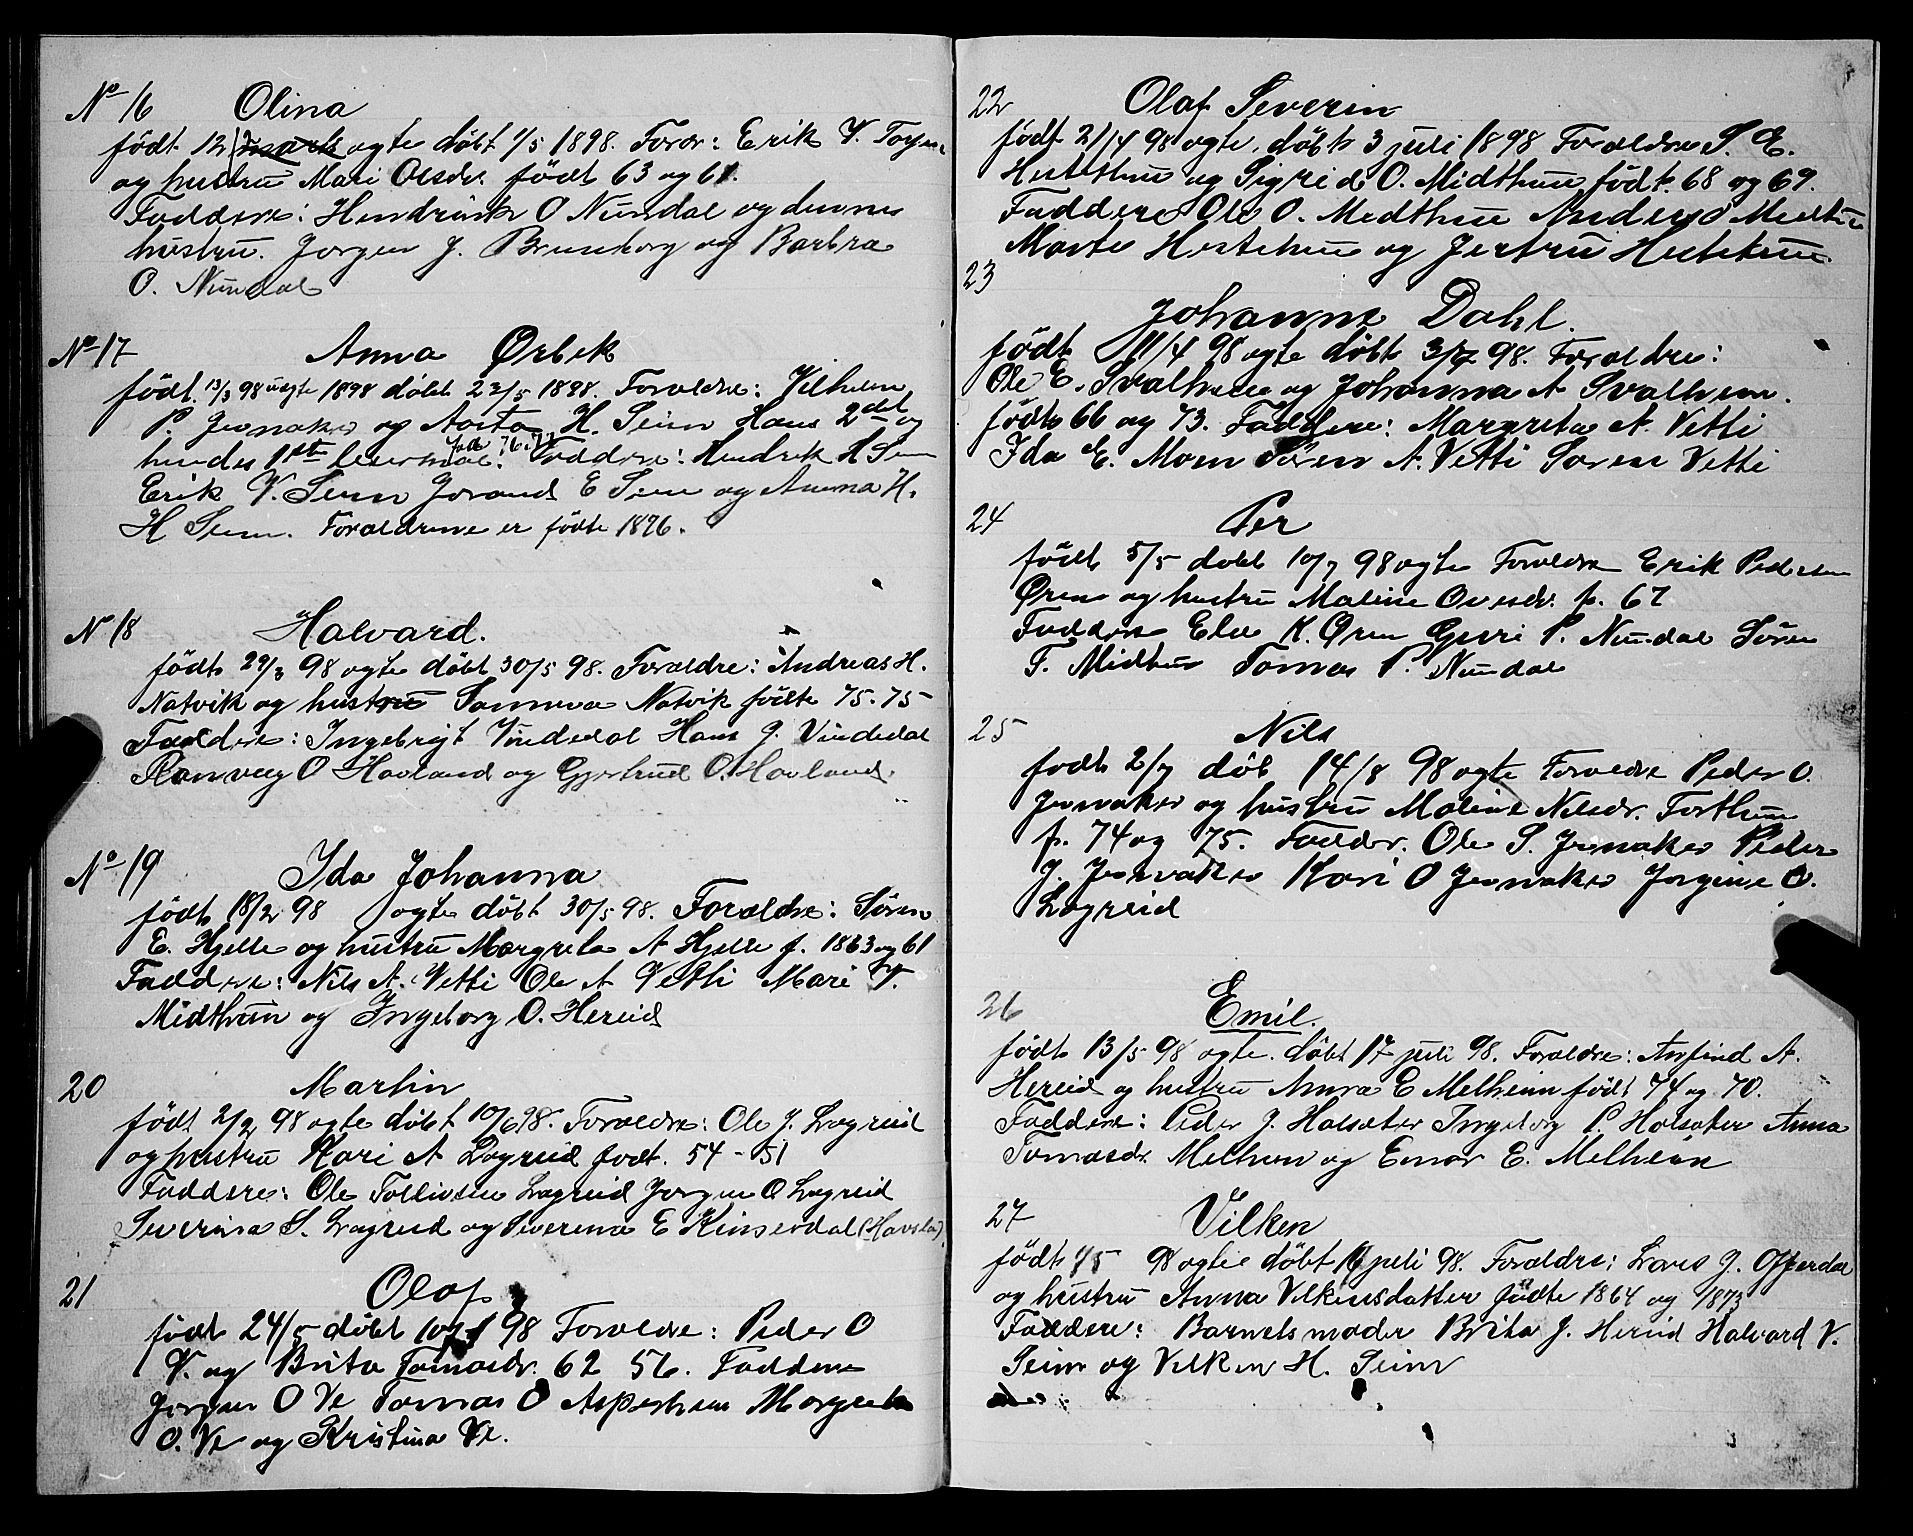 No 16 Olina
født 12/ ægte døbt 1/5 1898. Foror: Erik V.
og hustru Mari Olsdr. født 63 og 61.
Faddere: Hendrik O Nundal og dennes
hustru. Jørgen J. Brunborg og Barbra
O. Nundal
No 17 Anna Ørbek
født 13/3 98 uægte 1898 døbt 23/5 1898. Foræeldre: Vilhelm
P. Jevnaker og Aasta H. Seim Hans 2det og
hendes 1ste leiermaal. Faddere: Hendrik H Seim
Erik V. Seim Jorand E Seim og Anna H.
H Seim. Foraldrene er fødte 1876.
No 18 Halvard.
født 29/3 98 ægte døbt 30/5 98. Foraldre: Andreas H.
Natvik og hustru Sanneva Natvik fødte 75. 75
Faddere: Ingebrigt Vindedal Hans J. Vindedal
Ranveig O Hovland og Gjertrud O. Hovland.
No 19 Ida Johanna
født 18/2 98 ægte døbt 30/5 98. Foraldre: Søren
E. Hjelle og hustru Margreta A Hjelle f. 1863 og 61
Faddere: Nils A. Vetti Ole A Vetti Mari V.
Midthun og Ingeborg O. Hereid
20 Martin
født 2/2 98 ægte døbt 10/6 98. Foraldre: Ole J. Lægreid
og hustru Kari A Lægreid født. 54 - 51
Faddere: Ole Tollivsen Lægreid Jørgen O Lægreid
Severina S. Lægreid og Severina E Kinserdal
21 Olaf
født 24/5 døbt 98 Foraldre: Peder O
V. og Brita Tomasdr. 62 56. Faddere
Jørgen O Ve Tomas O Asperheim Margreta
O. Ve og Kristina Ve.
22 Olaf Severin
født 21/4 98 ægte. døbt 3 juli 1898 Foraldre S. E.
Hestethun og Sigrid O. Midthun født. 68 og 69.
Faddere Ole O. Midthun Anders O Midthun
Marte Hestethun og Jertru Hestethun.
23
Johanne Dahl.
født 11/4 98 ægte døbt 3/7 98. Foraldre:
Ole E. Svalheim og Johanna A Svalheim.
født 66 og 73. Faddere: Margreta A. Vetti
Ida E. Moen Søren A. Vetti Søren Vetti
24 Per
født 5/5 døbt 10/7 98 ægte Foraldre Erik Pedersen
Øren og hustru Maline Ovesdr. f. 67
Faddere Ele K. Øren Guri P. Nundal Søren
T. Midthun Tomas P. Nundal
25 Nils
født 2/7 døb 14/8 98 ægte Foraldre Peder O.
Jevnaker og hustru Maline Nilsdr. Forthun
f. 74 og 75. Fadder. Ole S. Jevnaker Peder
J. Jevnaker Kari O Jevnaker Jorgine O.
Lægreid
26 Emil.
født 13/5 98 ægte. døbt 17 juli 98. Foraldre: Anfind A.
Hereid og hustru Anna E Melheim født 74 og 70.
Faddere: Peder J. Holsæter Ingeborg P. Holsæter Anna
Tomasdr. Melheim og Einar E. Melheim
27 Vilken
født 98 ægte døbt juli 98. Foraldre: Lars J. Offerdal
og hustru Anna Vilkensdatter fødte 1864 og 1873
Faddere: Barnets moder Brita J. Hereid Halvard V.
Seim og Vilken H. Seim